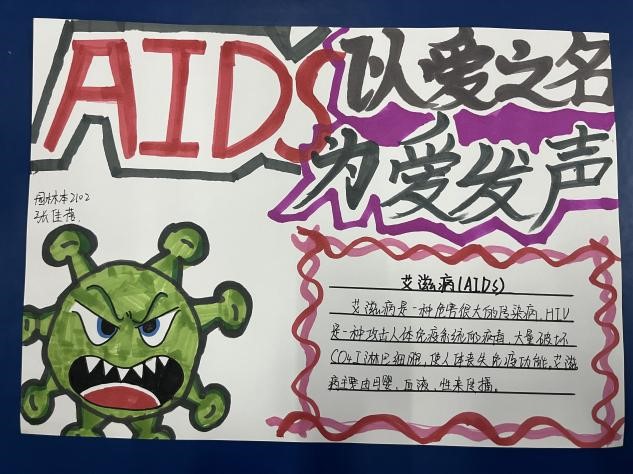 AIDS
以爱之名
为爱发声
园林本2102
张佳蓓
艾滋病(AIDS)
艾滋病是一种危害很大的传染病,HIV
是一种攻击人体免疫系统的病毒,大量破坏
CD4T淋巴细胞,使人体丧失免疫功能,艾滋
病主要由母婴,血液,性来传播。